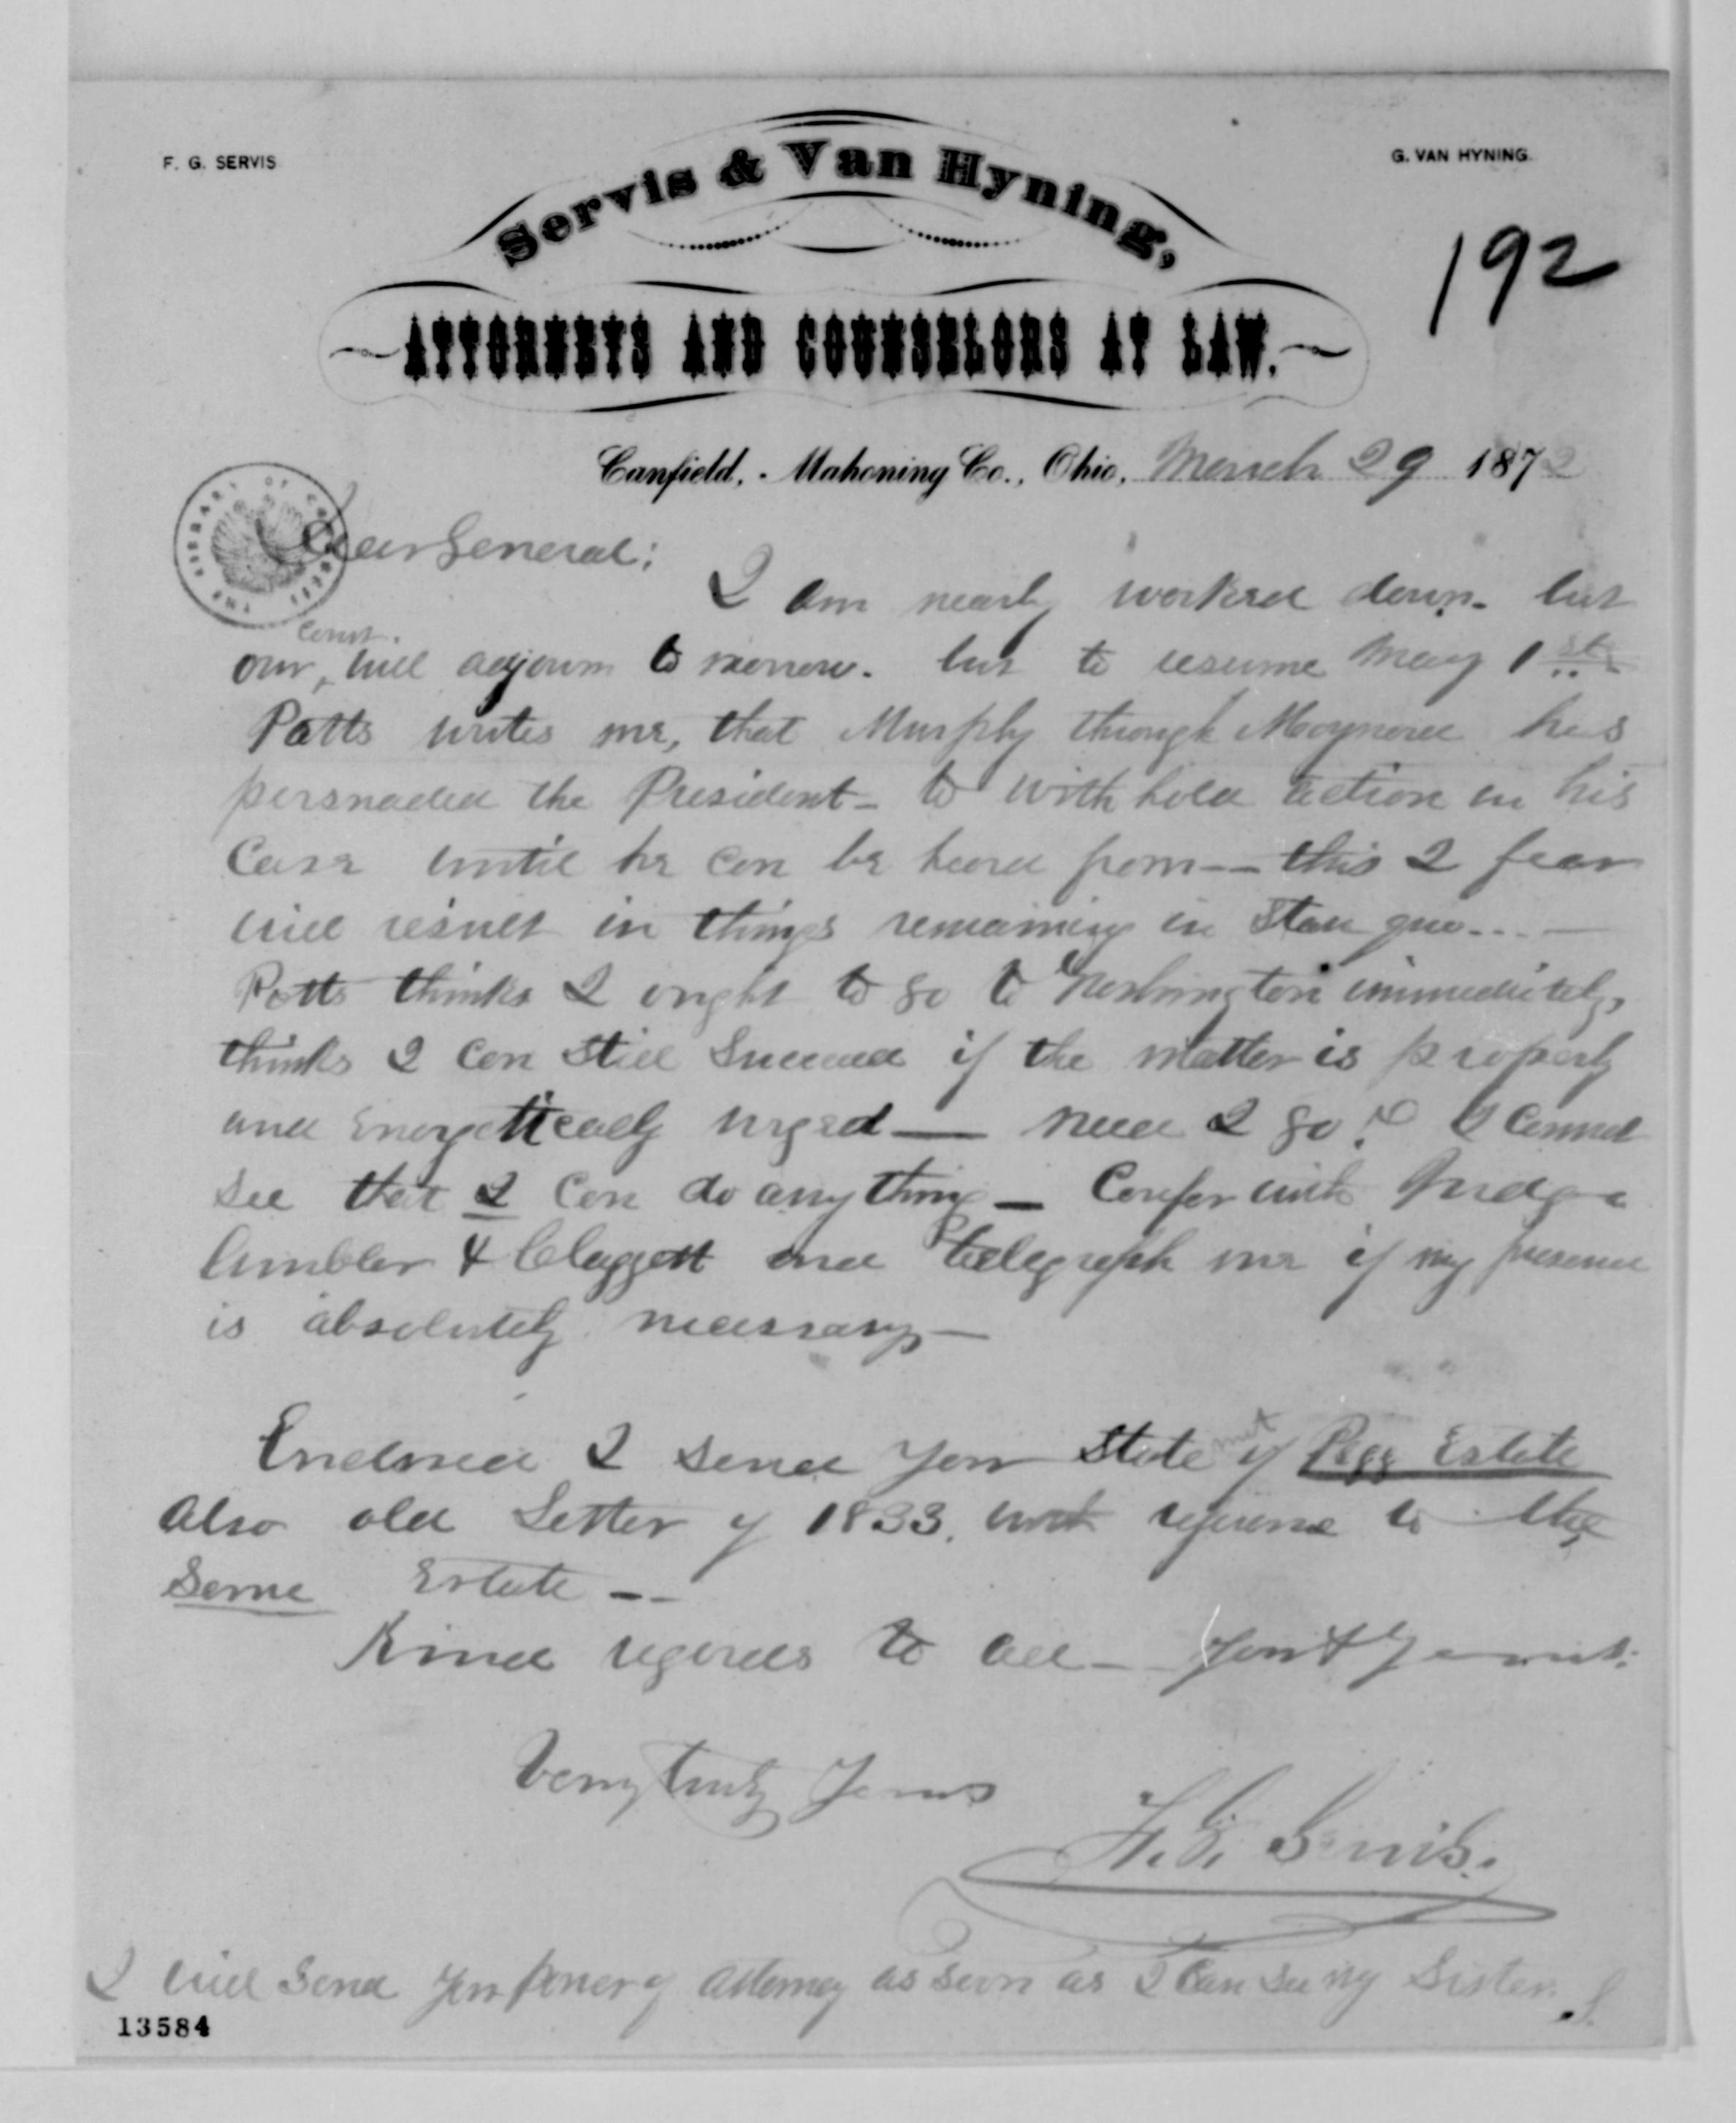 F. G. SERVIS
G. VAN HYNING.
Servis & Van Hyning,
192
ATTORNEYS AND COUNSELORS AT LAW.
Canfield, Mahoning Co., Ohio, March 29 1872
THE LIBRARY OF CONGRESS
Dear General:
I am nearly worked down. but
court.
our, will adjourn to morrow. but to resume May 1st
Potts writes me, that Murphy through Maynard has
persuaded the President - to with hold action in his
Case until he can be heard from -- this I fear
will result in things remaining in Statu quo... —
Potts thinks I ought to go to Washington immediately,
thinks I can still Succeed if the matter is properly
and Energetically urged — need I go? I cannot
see that I can do anything — Confer with Judge
Ambler & Claggett and telegraph me if my presence
is absolutely necessary —
Enclosed I send you Statemnt of Pegg Estate
Also old Letter of 1833. with reference to the
Same Estate --
Kind regards to all - You & Yours.
Very truly Yours
F. G. Servis.
I will Send you power of Attorney as soon as I can see my Sister. S.
13584